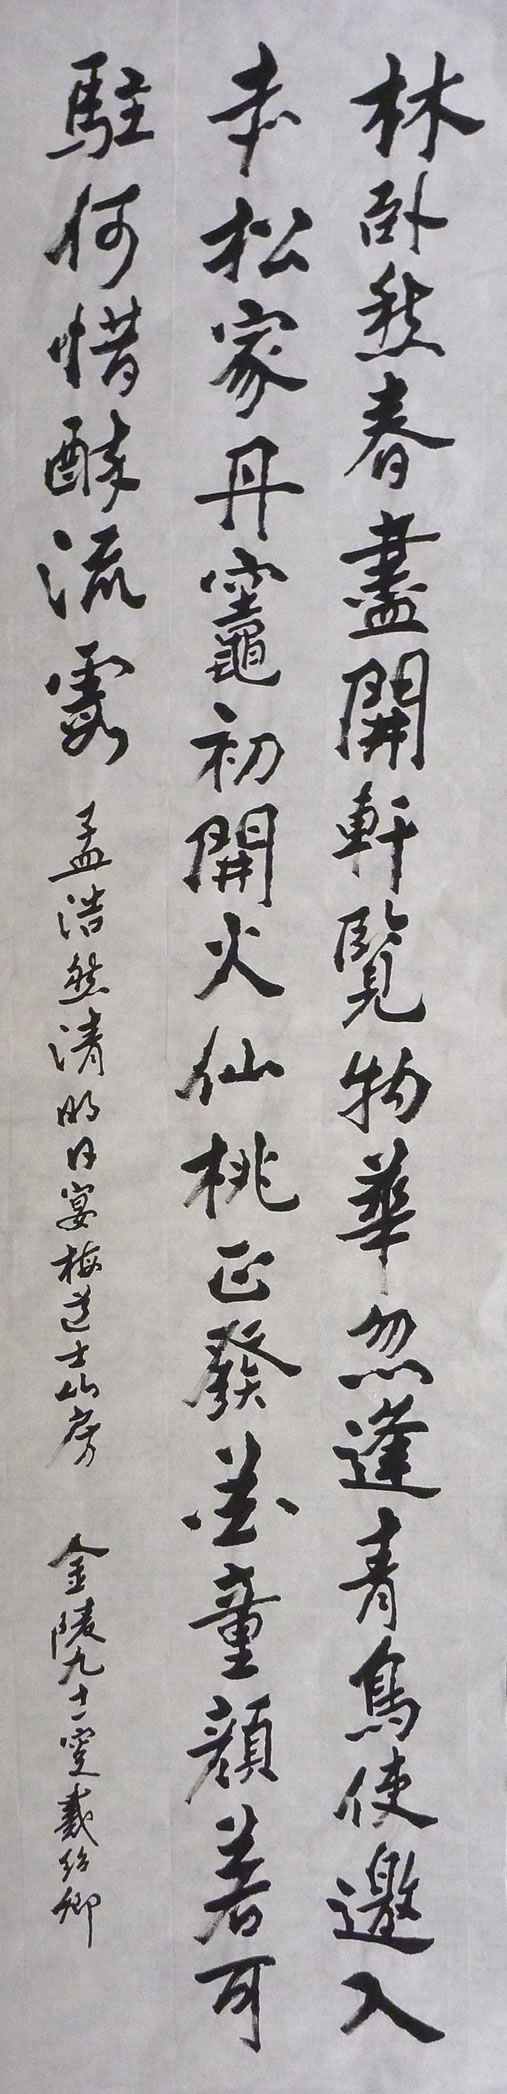 林卧愁春盡開軒覽物華忽逢青鳥使邀入
赤松家丹竈初開火仙桃正發花童顏若可
駐何惜醉流霞 孟浩然清明日宴梅道士山房 金陵九十一叟戴紹卿